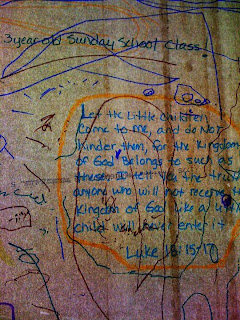 3 year old Sunday School Class
Let the little children
come to me, and do NOT
hinder them, for the Kingdom
of God belongs to such as
these. I tell you the truth
anyone who will not receive the
Kingdom of God like a little
child will never enter it
Luke 18:15-17